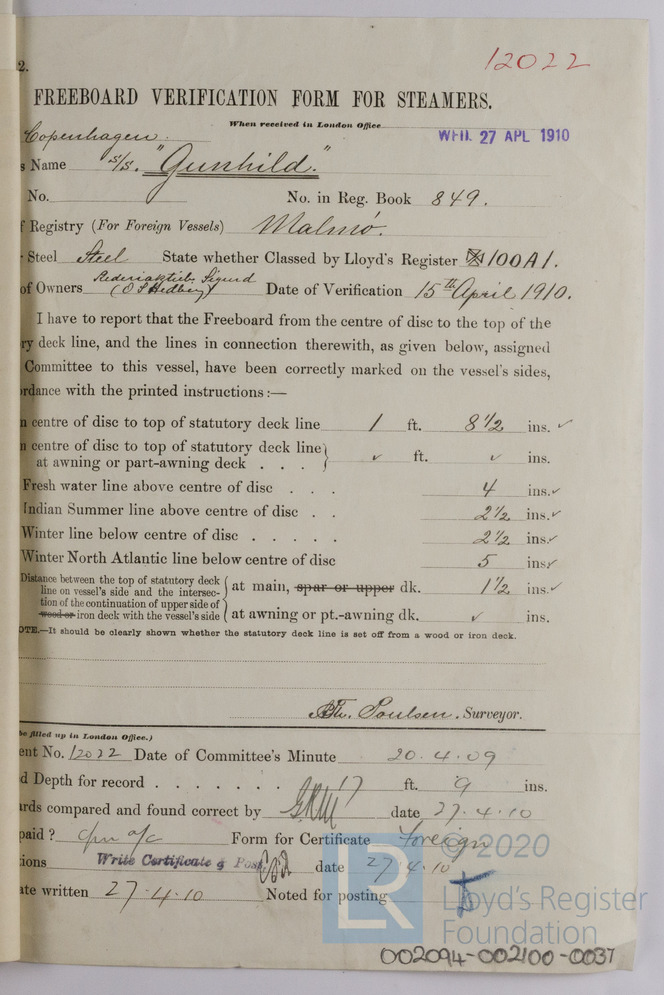 2.
12022
FREEBOARD VERIFICATION FORM FOR STEAMERS.
When received in London Office
Copenhagen.
WED. 27 APL 1910
s Name S/S. "Gunhild."
No. No. in Reg. Book 849.
f Registry (For Foreign Vessels) Malmö.
Steel Steel State whether Classed by Lloyd's Register 100 A1.
of Owners Rederiaktieb. Sigurd
(O S Hedberg) Date of Verification 15th April 1910.
I have to report that the Freeboard from the centre of disc to the top of the
ry deck line, and the lines in connection therewith, as given below, assigned
Committee to this vessel, have been correctly marked on the vessel's sides,
rdance with the printed instructions:—
n centre of disc to top of statutory deck line 1 ft. 8 1/2 ins. ✓
n centre of disc to top of statutory deck line
at awning or part-awning deck . . . ✓ ft. ✓ ins.
Fresh water line above centre of disc . . . 4 ins. ✓
Indian Summer line above centre of disc . . 2 1/2 ins. ✓
Winter line below centre of disc . . . . . 2 1/2 ins. ✓
Winter North Atlantic line below centre of disc 5 ins. ✓
Distance between the top of statutory deck
line on vessel's side and the intersec-
tion of the continuation of upper side of
wood or iron deck with the vessel's side
at main, spar or upper dk. 1 1/2 ins. ✓
at awning or pt.-awning dk. ✓ ins.
OTE.—It should be clearly shown whether the statutory deck line is set off from a wood or iron deck.
Poulsen. Surveyor.
be filled up in London Office.)
ent No. 12022 Date of Committee's Minute 20.4.09
d Depth for record . . . . . . . 17 ft. 9 ins.
rds compared and found correct by date 27.4.10
paid? a/c Form for Certificate Foreign
ions Write Certificate & Post. date 27.4.10
ate written 27.4.10 Noted for posting
© 2020
LR
Lloyd's Register
Foundation
002094-002100-0037